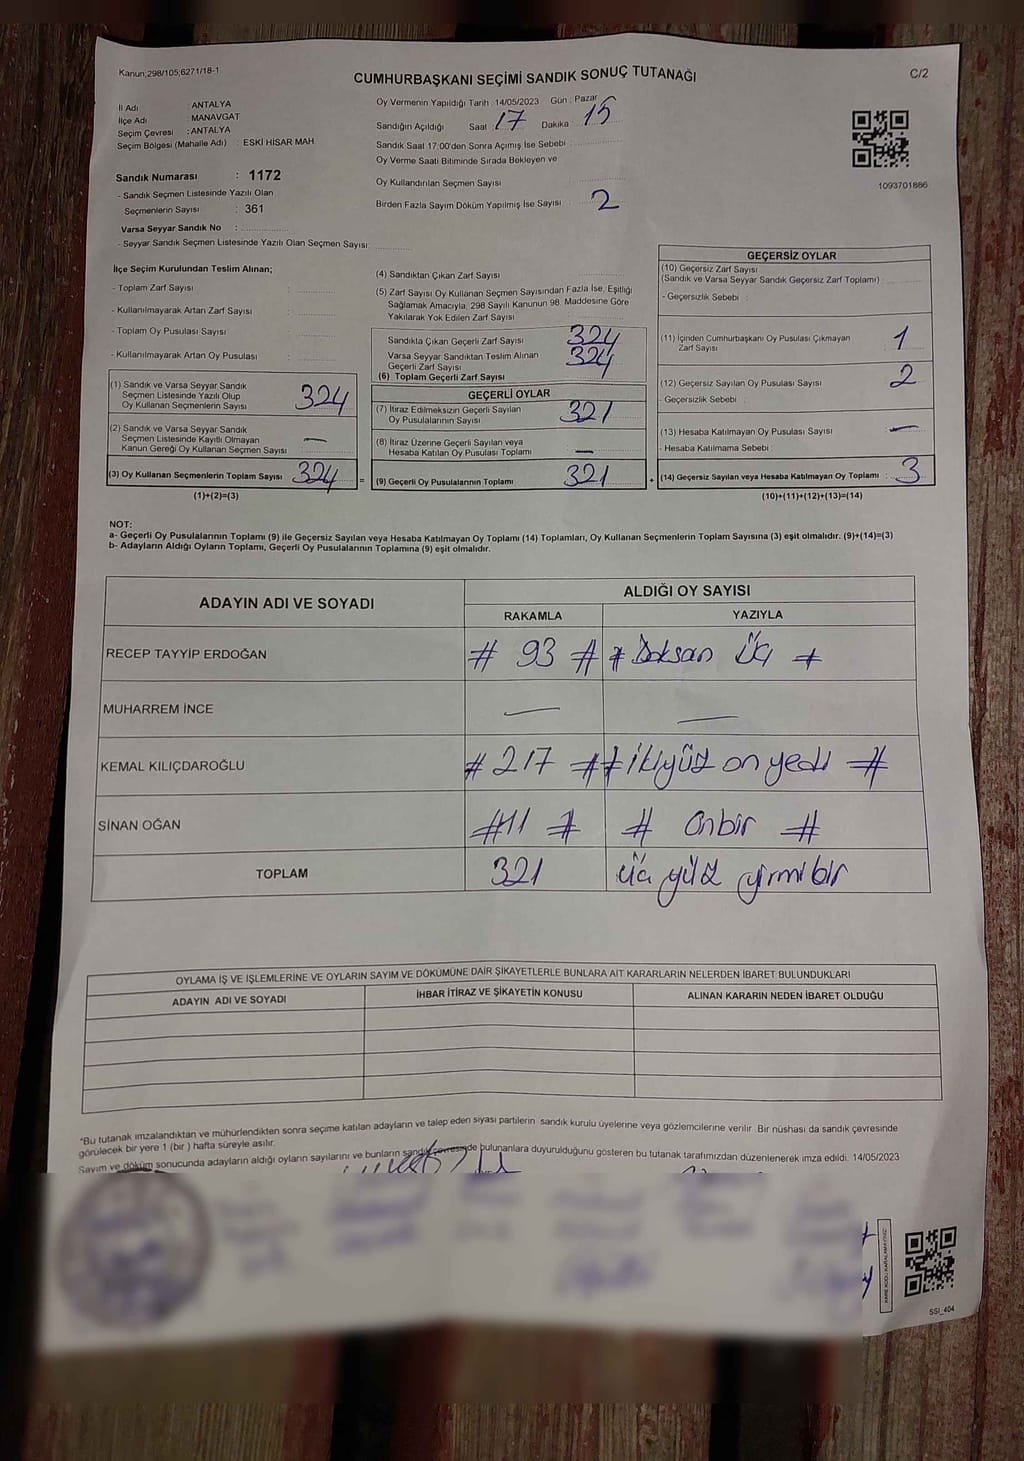 Kanun;298/105;6271/18-1
CUMHURBAŞKANI SEÇİMİ SANDIK SONUÇ TUTANAĞI
C/2
İl Adı : ANTALYA
İlçe Adı : MANAVGAT
Seçim Çevresi : ANTALYA
Seçim Bölgesi (Mahalle Adı) : ESKİ HİSAR MAH
Sandık Numarası : 1172
- Sandık Seçmen Listesinde Yazılı Olan
Seçmenlerin Sayısı : 361
Varsa Seyyar Sandık No :
- Seyyar Sandık Seçmen Listesinde Yazılı Olan Seçmen Sayısı:
Oy Vermenin Yapıldığı Tarih : 14/05/2023 Gün : Pazar
Sandığın Açıldığı Saat : 17 Dakika : 15
Sandık Saat 17:00'den Sonra Açımış İse Sebebi :
Oy Verme Saati Bitiminde Sırada Bekleyen ve
Oy Kullandırılan Seçmen Sayısı
Birden Fazla Sayım Döküm Yapılmış İse Sayısı : 2
1093701886
İlçe Seçim Kurulundan Teslim Alınan;
- Toplam Zarf Sayısı :
- Kullanılmayarak Artan Zarf Sayısı :
- Toplam Oy Pusulası Sayısı :
- Kullanılmayarak Artan Oy Pusulası :
(1) Sandık ve Varsa Seyyar Sandık
Seçmen Listesinde Yazılı Olup
Oy Kullanan Seçmenlerin Sayısı 324
(2) Sandık ve Varsa Seyyar Sandık
Seçmen Listesinde Kayıtlı Olmayan
Kanun Gereği Oy Kullanan Seçmen Sayısı : —
(3) Oy Kullanan Seçmenlerin Toplam Sayısı 324 =
(1)+(2)=(3)
(4) Sandıktan Çıkan Zarf Sayısı
(5) Zarf Sayısı Oy Kullanan Seçmen Sayısından Fazla İse, Eşitliği
Sağlamak Amacıyla, 298 Sayılı Kanunun 98. Maddesine Göre
Yakılarak Yok Edilen Zarf Sayısı
Sandıkta Çıkan Geçerli Zarf Sayısı 324
Varsa Seyyar Sandıktan Teslim Alınan
Geçerli Zarf Sayısı 324
(6) Toplam Geçerli Zarf Sayısı
GEÇERLİ OYLAR
(7) İtiraz Edilmeksizin Geçerli Sayılan
Oy Pusulalarının Sayısı 321
(8) İtiraz Üzerine Geçerli Sayılan veya
Hesaba Katılan Oy Pusulası Toplamı —
(9) Geçerli Oy Pusulalarının Toplamı 321 +
GEÇERSİZ OYLAR
(10) Geçersiz Zarf Sayısı
(Sandık ve Varsa Seyyar Sandık Geçersiz Zarf Toplamı) :
- Geçersizlik Sebebi :
(11) İçinden Cumhurbaşkanı Oy Pusulası Çıkmayan
Zarf Sayısı 1
(12) Geçersiz Sayılan Oy Pusulası Sayısı 2
- Geçersizlik Sebebi :
(13) Hesaba Katılmayan Oy Pusulası Sayısı —
- Hesaba Katılmama Sebebi :
(14) Geçersiz Sayılan veya Hesaba Katılmayan Oy Toplamı : 3
(10)+(11)+(12)+(13)=(14)
NOT:
a- Geçerli Oy Pusulalarının Toplamı (9) ile Geçersiz Sayılan veya Hesaba Katılmayan Oy Toplamı (14) Toplamları, Oy Kullanan Seçmenlerin Toplam Sayısına (3) eşit olmalıdır. (9)+(14)=(3)
b- Adayların Aldığı Oyların Toplamı, Geçerli Oy Pusulalarının Toplamına (9) eşit olmalıdır.
ADAYIN ADI VE SOYADI
ALDIĞI OY SAYISI
RAKAMLA YAZIYLA
RECEP TAYYİP ERDOĞAN # 93 # # Doksan Üç #
MUHARREM İNCE — —
KEMAL KILIÇDAROĞLU # 217 # # ikiyüz on yedi #
SİNAN OĞAN # 11 # # Onbir #
TOPLAM 321 üç yüz yirmi bir
OYLAMA İŞ VE İŞLEMLERİNE VE OYLARIN SAYIM VE DÖKÜMÜNE DAİR ŞİKAYETLERLE BUNLARA AİT KARARLARIN NELERDEN İBARET BULUNDUKLARI
ADAYIN ADI VE SOYADI İHBAR İTİRAZ VE ŞİKAYETİN KONUSU ALINAN KARARIN NEDEN İBARET OLDUĞU
*Bu tutanak imzalandıktan ve mühürlendikten sonra seçime katılan adayların ve talep eden siyasi partilerin sandık kurulu üyelerine veya gözlemcilerine verilir. Bir nüshası da sandık çevresinde
görülecek bir yere 1 (bir ) hafta süreyle asılır.
Sayım ve döküm sonucunda adayların aldığı oyların sayılarını ve bunların sandık çevresinde bulunanlara duyurulduğunu gösteren bu tutanak tarafımızdan düzenlenerek imza edildi. 14/05/2023
SSI_404